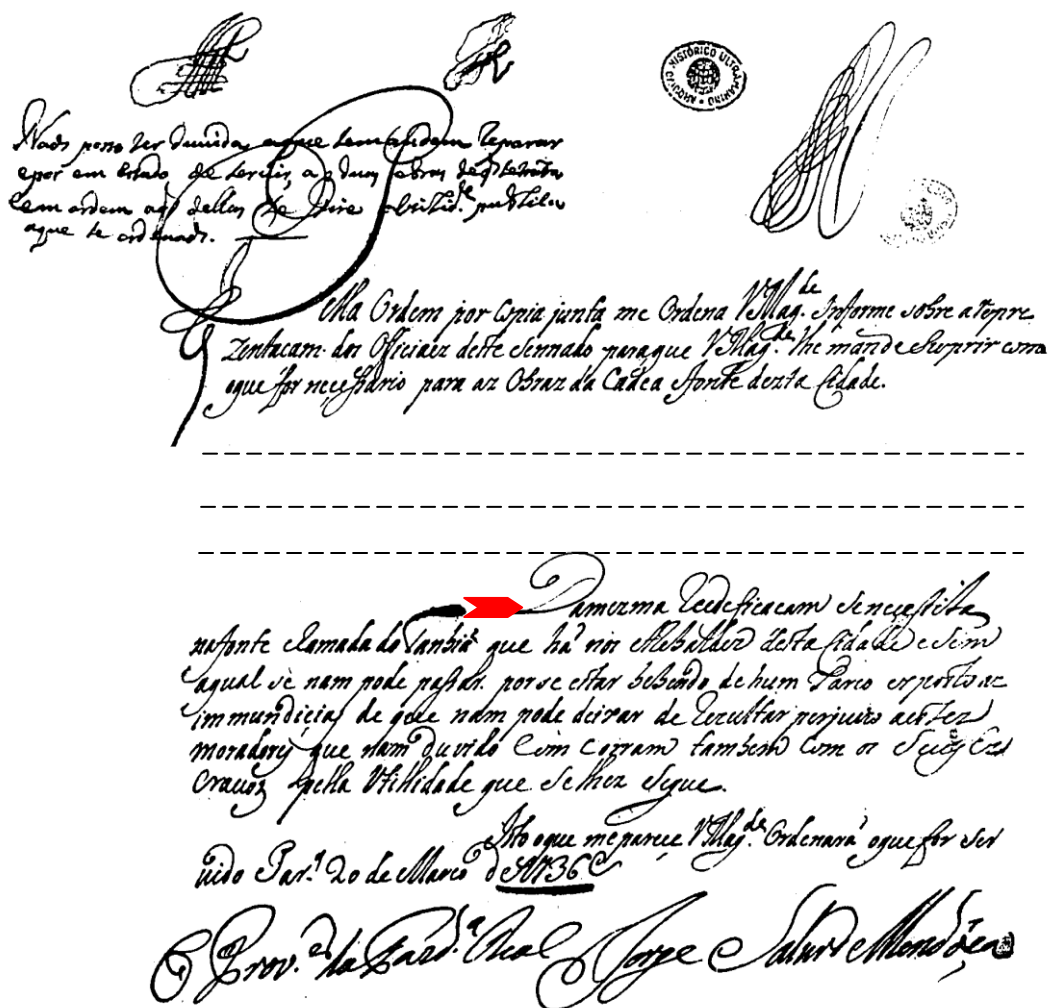 ARQUIVO HISTÓRICO ULTRAMARINO
Naõ poso ter duvida, a que se mandem reparar
e por em estado de servir, as duas obras de q se trata
sem ordem
a que se ordenaõ.
Pella Ordem por Copia junta me Ordena V Mag.de Informe sobre a repre
zentacam dos Officiaez deste Sennado paraque V Mag.de lhe mande Suprir com a
oque for necessario para az Obraz da Cadea e fonte dezta Cidade.
Da mezma Reedeficacam Se necessita
na fonte chamada do Tambiá que há nos Arebaldez desta Cidade e sem
a qual se nam pode passar por se estar bebendo de hum Parco exposto az
immundicias de que nam pode deixar de Rezultar perjuizo aestez
moradores que nam duvido Com Corram tambem com os Seuz Ez
Cravoz pella Utillidade que Se lhez Segue.
Isto oque me parece V Mag.de Ordenará oque for Ser
uido Par.ª 20 de Marco de 1736
O Prov.or da Fazd.ª Real Jorge Salter de Mendoça